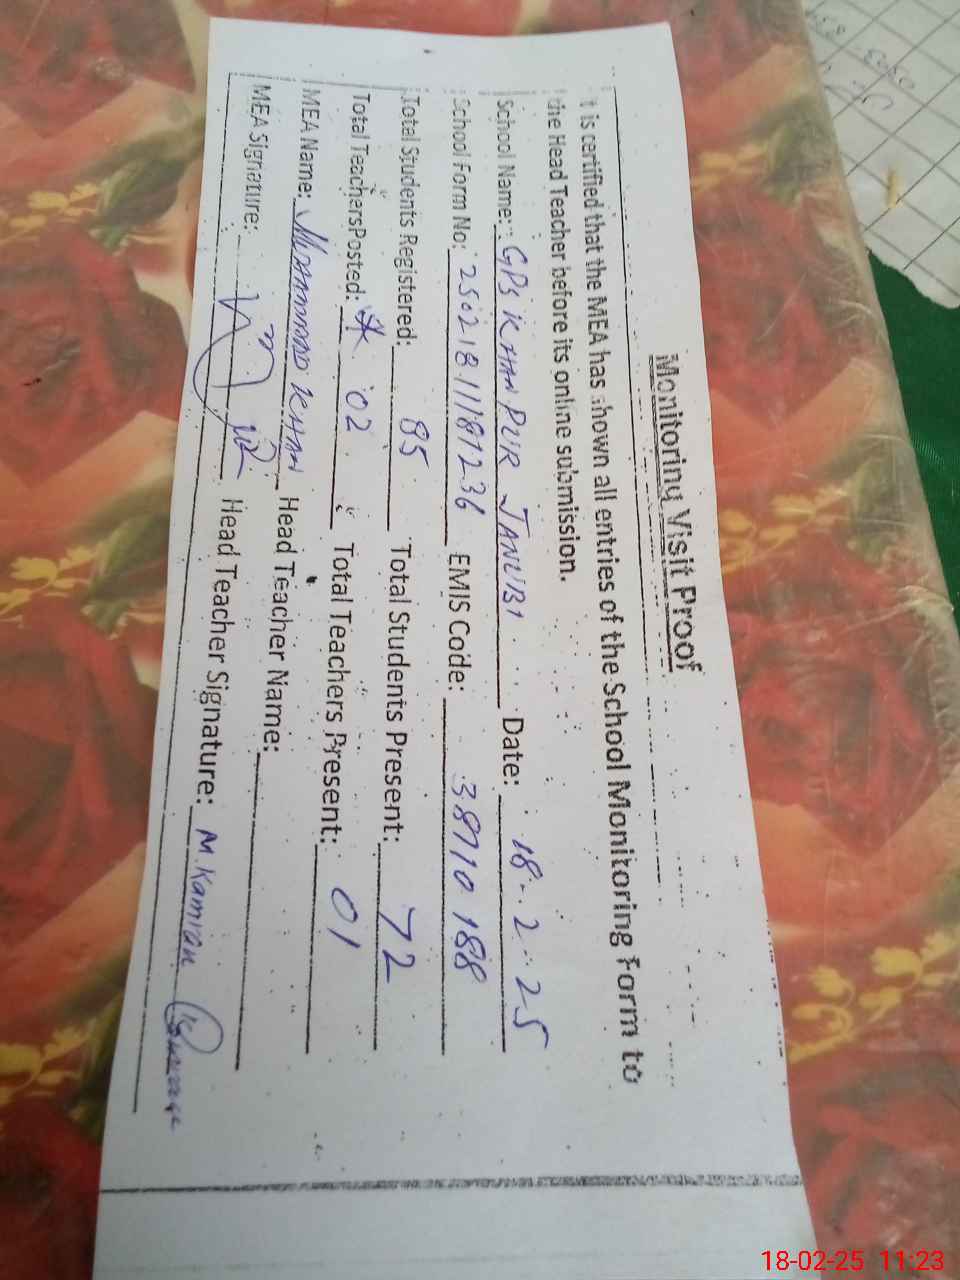 Monitoring Visit Proof
It is certified that the MEA has shown all entries of the School Monitoring Form to
the Head Teacher before its online submission.
School Name: GPS KHANPUR JANUBI Date: 18-2-25
School Form No: EMIS Code: 38710188
Total Students Registered: 85 Total Students Present: 72
Total Teachers Posted: 02 Total Teachers Present: 01
MEA Name: MUHAMMAD KHAN Head Teacher Name:
MEA Signature: Head Teacher Signature: M. Kamran
18-02-25 11:23